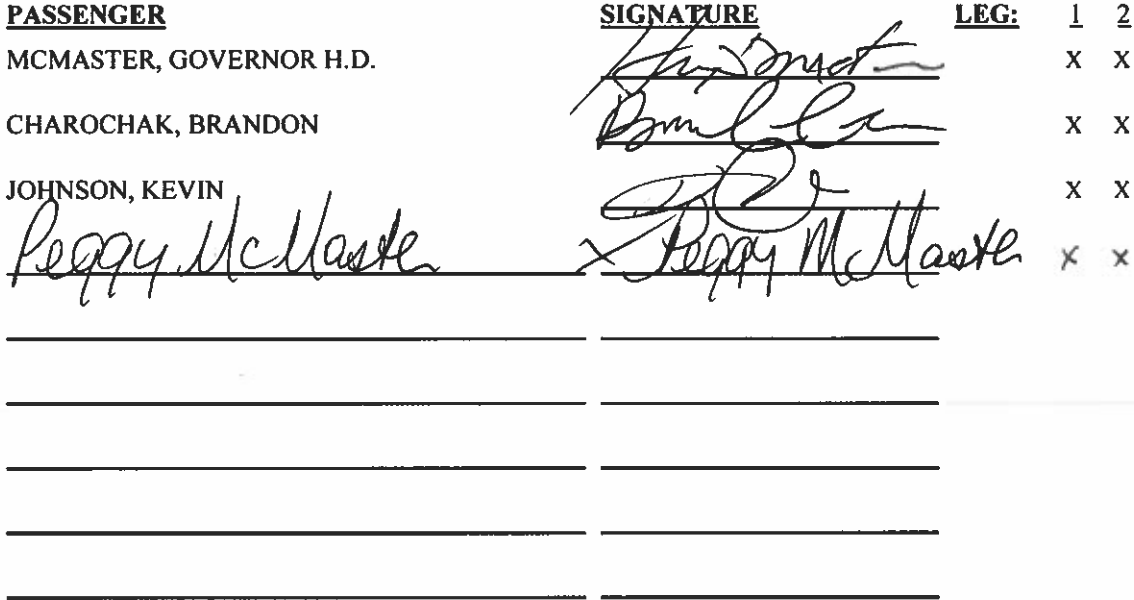 PASSENGER SIGNATURE LEG: 1 2
MCMASTER, GOVERNOR H.D. X X
CHAROCHAK, BRANDON X X
JOHNSON, KEVIN X X
Peggy McMaster X Peggy McMaster X X